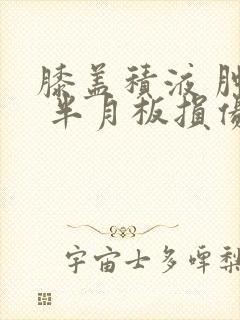 膝盖积液
半月板损伤
宇宙士多啤梨